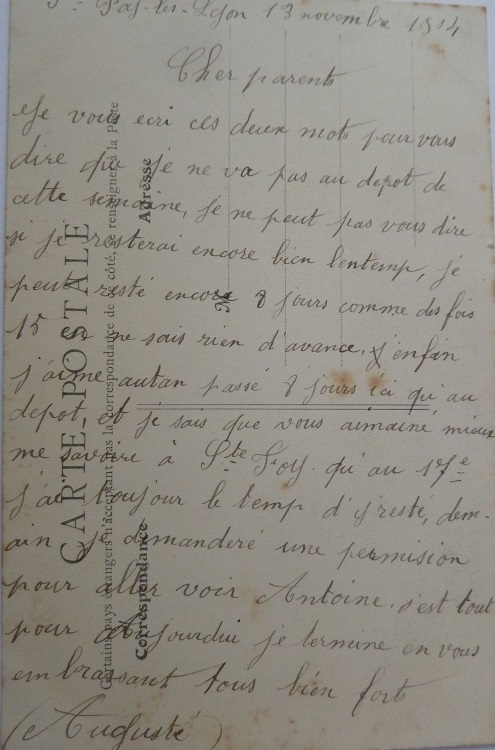 Foy-les-Lyon 13 novembre 1914
Cher parents
Je vous ecri ces deux mots pour vous
dire que je ne va pas au depot de
cette semaine, je ne peut pas vous dire
si je resterai encore bien lentemp, je
peut resté encore 8 jours comme des fois
15 on ne sais rien d'avance, enfin
j'aime autan passé 8 jours ici qu'au
depot, et je sais que vous aimaine mieux
me savoire à Ste Foy qu'au 17e
j'ai toujour le temp d'y resté, dem-
ain je demanderé une permision
pour aller voir Antoine. s'est tout
pour aujourdui je termine en vous
embrassant tous bien fort
(Augusté)
CARTE POSTALE
Certains pays étrangers n'acceptant pas la correspondance de ce côté, se renseigner à la Poste
Correspondance
Adresse
M